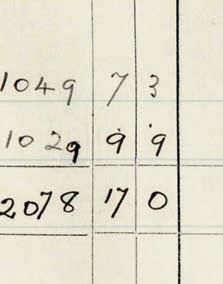 1049 7 3
1029 9 9
2078 17 0